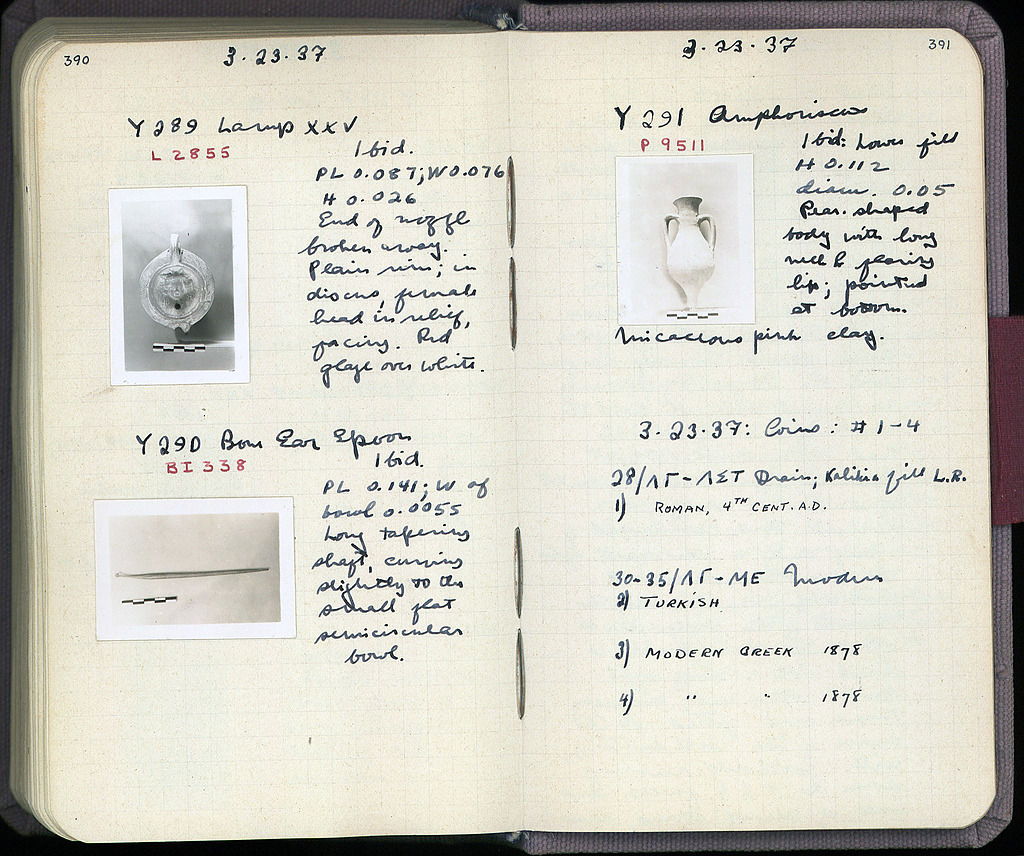 390
3·23·37
Y 289 Lamp XXV
L 2855
Ibid.
PL 0.087; W 0.076
H 0.026
End of nozzle
broken away.
Plain rim; in
discus, female
head in relief,
facing. Red
glaze over white.
Y 290 Bone Ear Spoon
BI 338
Ibid.
PL 0.141; W of
bowl 0.0055
Long tapering
shaft, curving
slightly to the
small flat
semicircular
bowl.
3·23·37
391
Y 291 Amphoriscus
P 9511
Ibid: Lower fill
H 0.112
diam. 0.05
Pear-shaped
body with long
neck & flaring
lip; pointed
at bottom.
Micaceous pink clay.
3·23·37: Coins: #1-4
28/ΛΓ-ΛΣΤ Drain; Kalikia fill L.R.
1) ROMAN, 4TH CENT. A.D.
30-35/ΛΓ-ΜΕ Modern
2) TURKISH
3) MODERN GREEK 1878
4) " " 1878